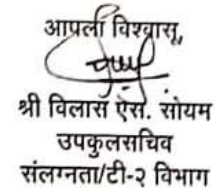 आपला विश्वासू,
श्री विलास ऐस. सोयम
उपकुलसचिव
संलग्नता/टी-२ विभाग